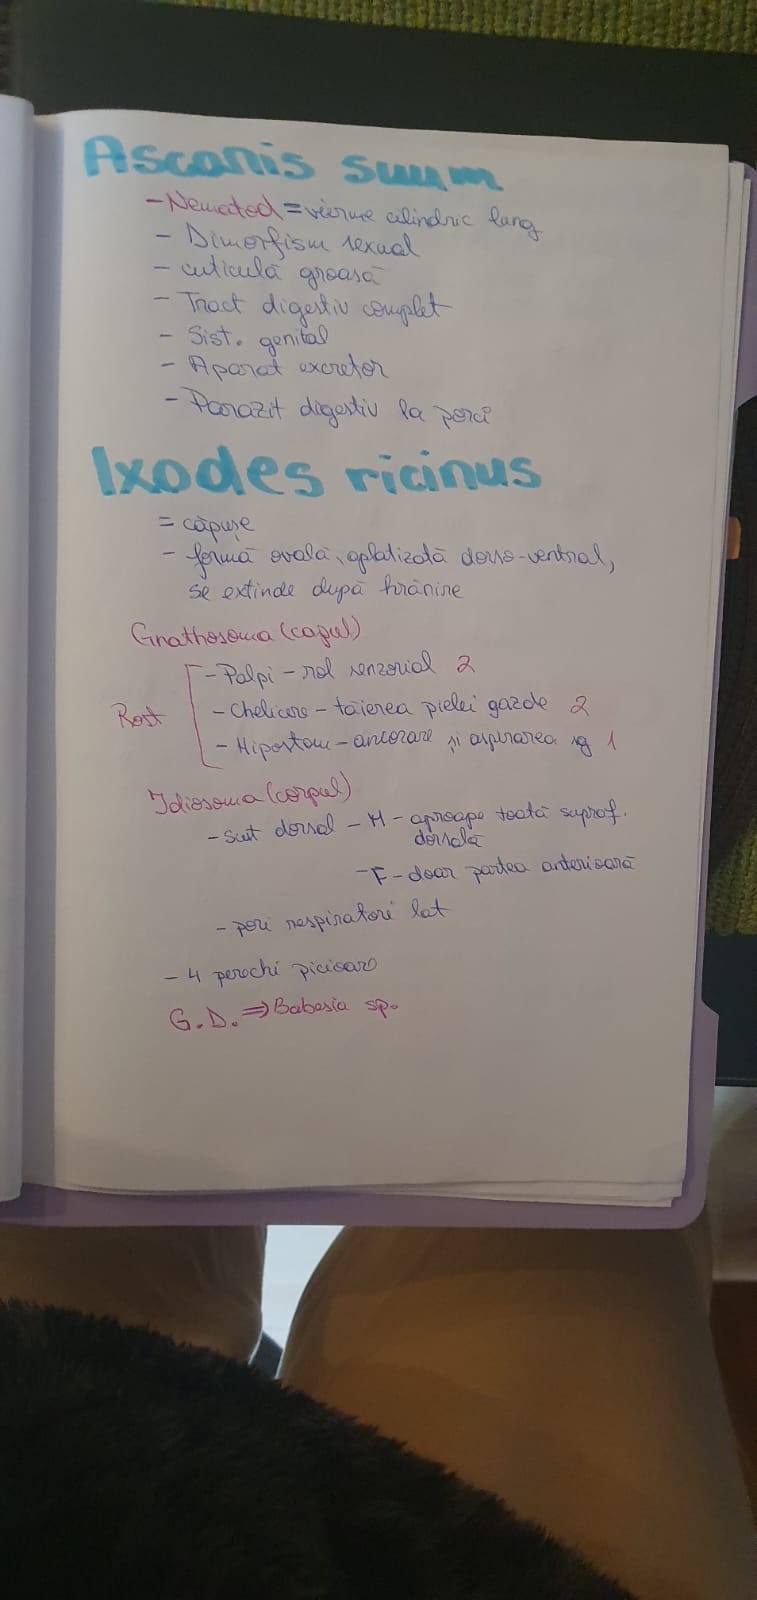 Ascaris suum
- Nematod = vierme cilindric lung
- Dimorfism sexual
- cuticulă groasă
- Tract digestiv complet
- Sist. genital
- Aparat excretor
- Parazit digestiv la porci
Ixodes ricinus
= căpușe
- formă ovală, aplatizată dorso-ventral,
se extinde după hrănire
Gnathosoma (capul)
- Palpi - rol senzorial 2
Rost - Chelicere - tăierea pielei gazde 2
- Hipostom - ancorare și aspirarea sg 1
Idiosoma (corpul)
- Scut dorsal - M - aproape toată supraf.
dorsală
- F - doar partea anterioară
- pori respiratori lat
- 4 perechi picioare
G.D. => Babesia sp.